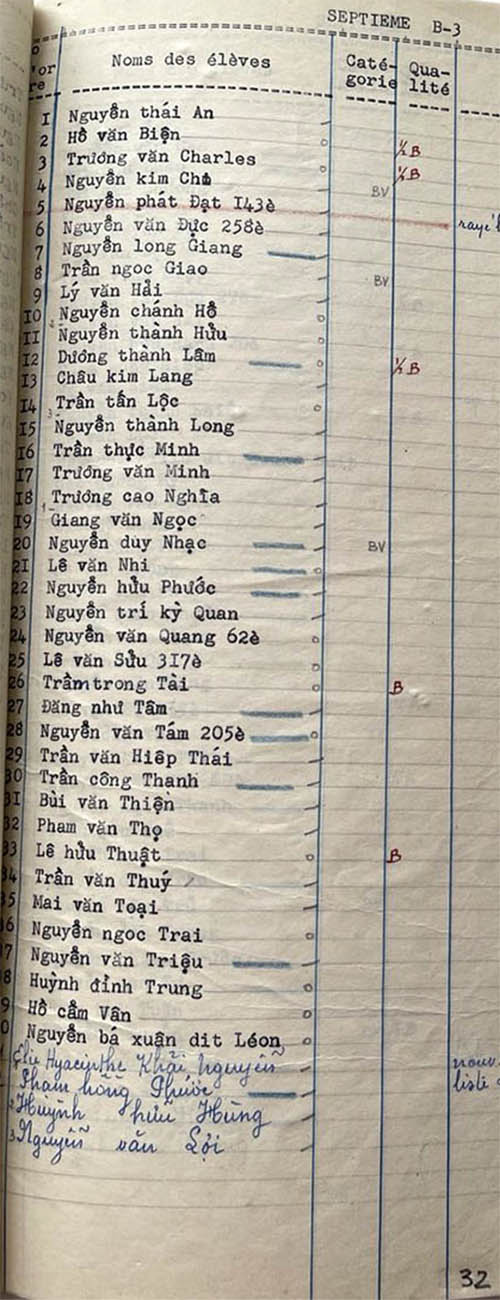 SEPTIEME B-3
Noms des élèves Caté- Qua-
gorie lité
1 Nguyễn thái An
2 Hồ văn Biện
3 Trương văn Charles ½ B
4 Nguyễn kim Chi ½ B
5 Nguyễn phát Đạt 143è BV
6 Nguyễn văn Đực 258è
7 Nguyễn long Giang
8 Trần ngoc Giao
9 Lý văn Hải BV
10 Nguyễn chánh Hồ
11 Nguyễn thành Hữu
12 Dương thành Lâm ½ B
13 Châu kim Lang
14 Trần tấn Lộc
15 Nguyễn thành Long
16 Trần thực Minh
17 Trương văn Minh
18 Trương cao Nghĩa
19 Giang văn Ngọc
20 Nguyễn duy Nhạc BV
21 Lê văn Nhi
22 Nguyễn hữu Phước
23 Nguyễn trí kỳ Quan
24 Nguyễn văn Quang 62è
25 Lê văn Sửu 317è
26 Trầm trong Tài B
27 Đăng như Tâm
28 Nguyễn văn Tám 205è
29 Trần văn Hiêp Thái
30 Trần công Thanh
31 Bùi văn Thiện
32 Pham văn Thọ
33 Lê hữu Thuật B
34 Trần văn Thuý
35 Mai văn Toại
36 Nguyễn ngoc Trai
37 Nguyễn văn Triệu
38 Huỳnh đình Trung
39 Hồ cẩm Vân
40 Nguyễn bá xuận dit Léon
Elie Hyacinthe Khải Nguyễn nouv.
Phạm hồng Phước liste
2 Huỳnh hữu Hùng
3 Nguyễn văn Lợi
32